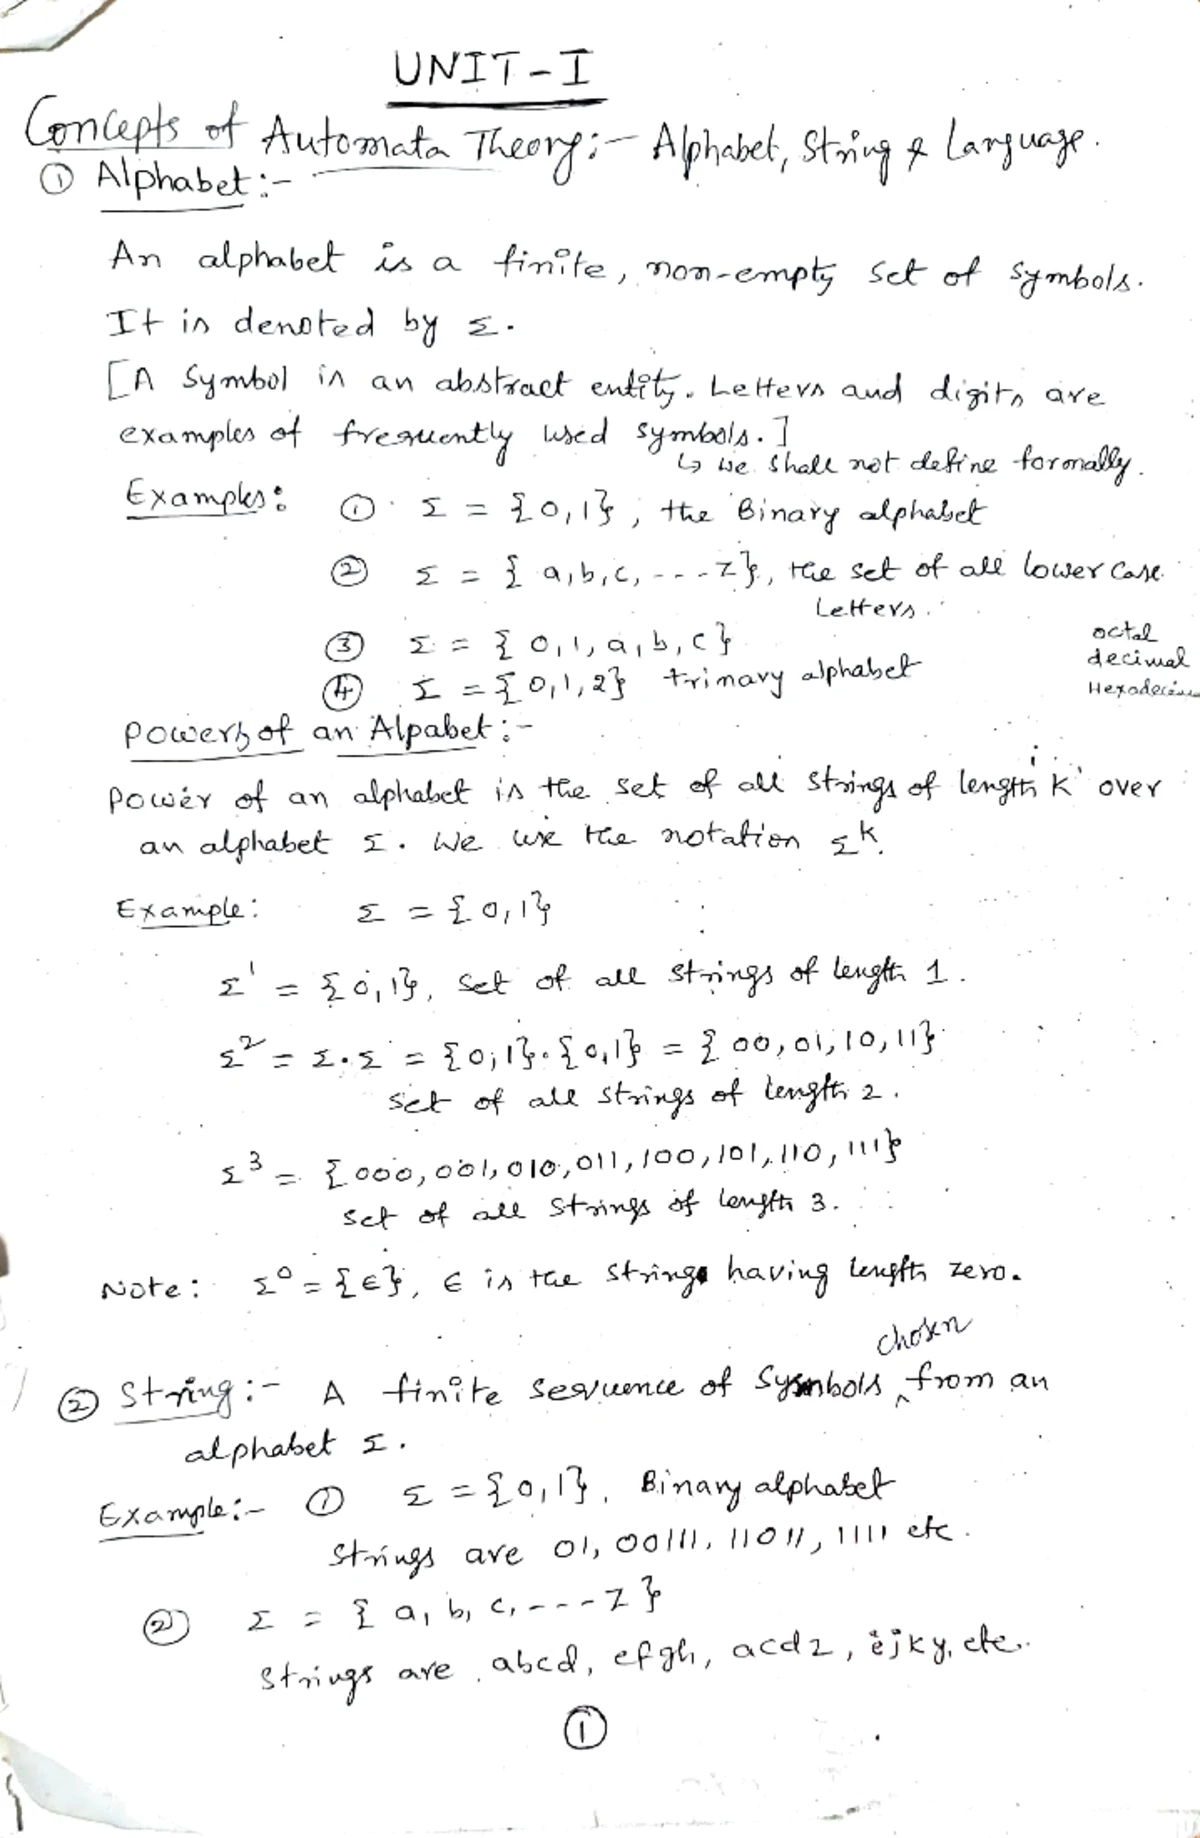 UNIT-I
Concepts of Automata Theory:- Alphabet, String & Language.
① Alphabet:-
An alphabet is a finite, non-empty set of symbols.
It is denoted by Σ.
[A Symbol is an abstract entity. Letters and digits are
examples of frequently used symbols.]
↳ we shall not define formally.
Examples: ① Σ = {0,1}, the Binary alphabet
② Σ = {a,b,c, ---- z}, the set of all lower case
Letters.
③ Σ = {0,1,a,b,c}
octal
decimal
④ Σ = {0,1,2} trinary alphabet
Powers of an Alpabet:-
Power of an alphabet is the set of all strings of length 'k' over
an alphabet Σ. We use the notation Σ^k.
Example: Σ = {0,1}
Σ¹ = {0,1}, set of all strings of length 1.
Σ² = Σ.Σ = {0,1}.{0,1} = {00,01,10,11}
set of all strings of length 2.
Σ³ = {000,001,010,011,100,101,110,111}
set of all strings of length 3.
Note: Σ⁰ = {ϵ}, ϵ is the string having length zero.
chosen
② String:- A finite sequence of Symbols ^ from an
alphabet Σ.
Example:- ① Σ = {0,1}, Binary alphabet
Strings are 01, 00111, 11011, 1111 etc.
② Σ = {a, b, c, ---- z}
Strings are abcd, efgh, acdz, ejky, etc.
①